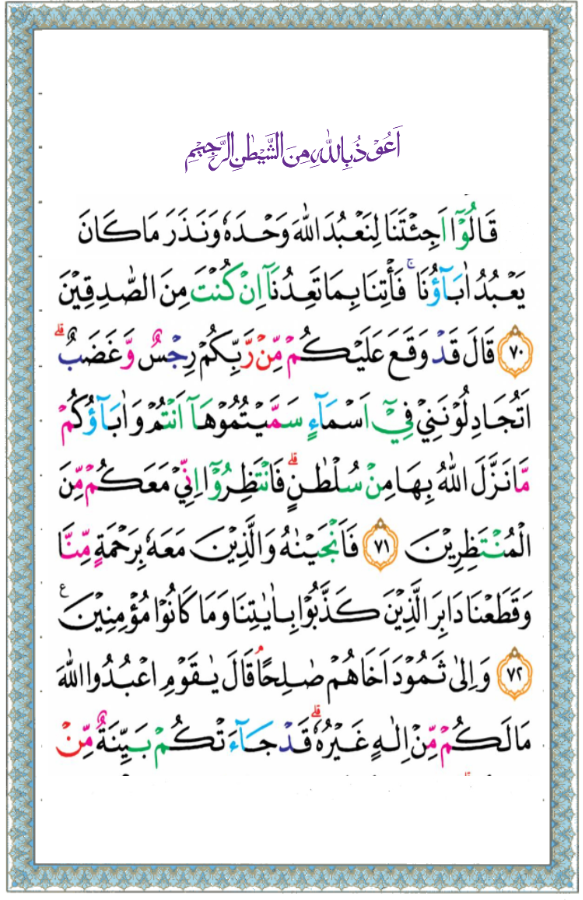 اَعُوْذُ بِاللّٰهِ مِنَ الشَّيْطٰنِ الرَّجِيْمِ
قَالُوْۤا اَجِئْتَنَا لِنَعْبُدَ اللّٰهَ وَحْدَهٗ وَنَذَرَ مَا كَانَ
يَعْبُدُ اٰبَآؤُنَا ۚ فَاْتِنَا بِمَا تَعِدُنَاۤ اِنْ كُنْتَ مِنَ الصّٰدِقِيْنَ
﴿٧٠﴾ قَالَ قَدْ وَقَعَ عَلَيْكُمْ مِّنْ رَّبِّكُمْ رِجْسٌ وَّغَضَبٌ ؕ
اَتُجَادِلُوْنَنِيْ فِيْۤ اَسْمَآءٍ سَمَّيْتُمُوْهَاۤ اَنْتُمْ وَاٰبَآؤُكُمْ
مَّا نَزَّلَ اللّٰهُ بِهَا مِنْ سُلْطٰنٍ ؕ فَانْتَظِرُوْۤا اِنِّيْ مَعَكُمْ مِّنَ
الْمُنْتَظِرِيْنَ ﴿٧١﴾ فَاَنْجَيْنٰهُ وَالَّذِيْنَ مَعَهٗ بِرَحْمَةٍ مِّنَّا
وَقَطَعْنَا دَابِرَ الَّذِيْنَ كَذَّبُوْا بِاٰيٰتِنَا وَمَا كَانُوْا مُؤْمِنِيْنَ ع
﴿٧٢﴾ وَاِلٰى ثَمُوْدَ اَخَاهُمْ صٰلِحًا ۘ قَالَ يٰقَوْمِ اعْبُدُوا اللّٰهَ
مَا لَكُمْ مِّنْ اِلٰهٍ غَيْرُهٗ ؕ قَدْ جَآءَتْكُمْ بَيِّنَةٌ مِّنْ